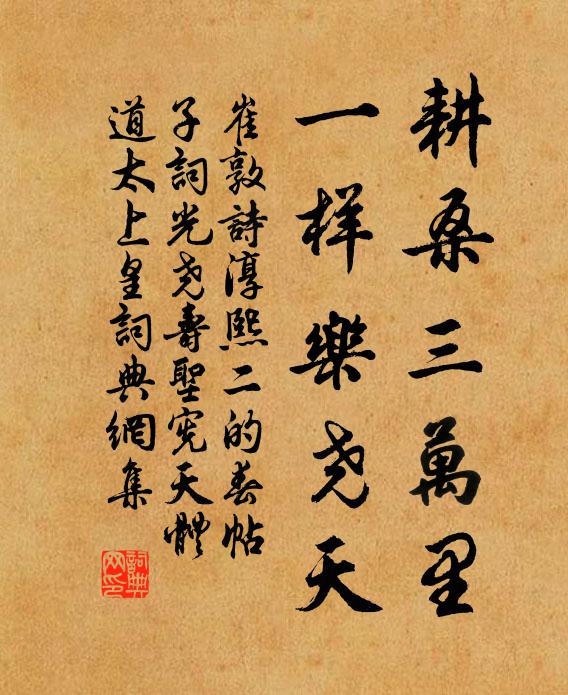 耕桑三萬里
一样樂尧天
崔敦詩淳熙二的春帖
子詞光尧壽聖宪天體
道太上皇詞典網集
詞典网印